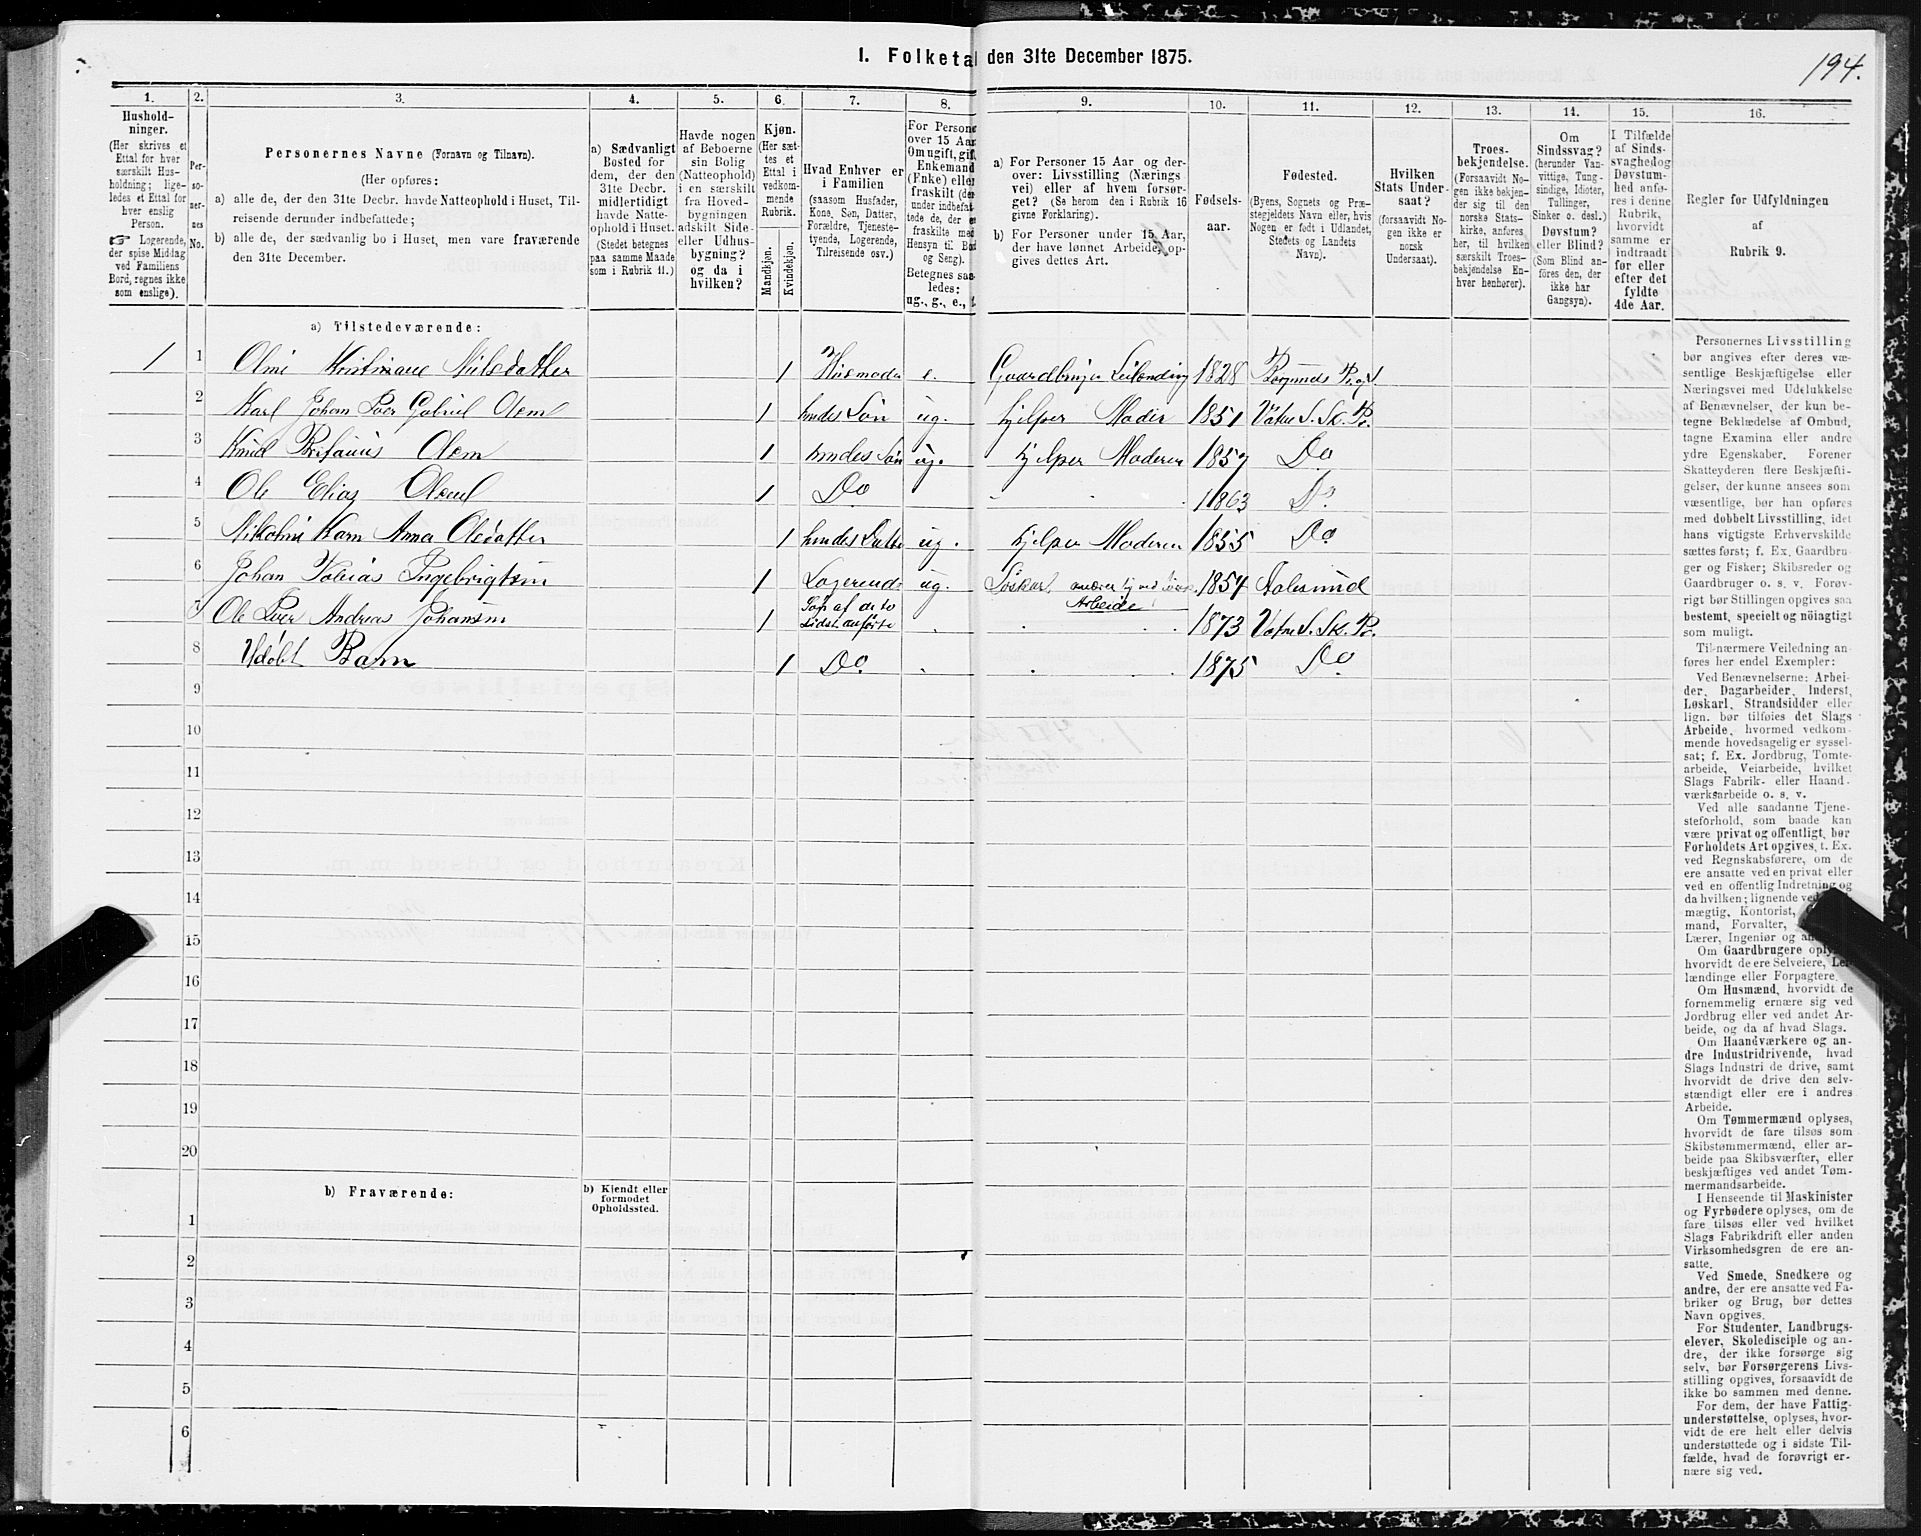 I. Folketal den 31te December 1875.
194.
1.
Hushold-
ninger.
(Her skrives et
Ettal for hver
særskilt Hus-
holdning; lige-
ledes et Ettal for
hver enslig
Person.
☞ Logerende,
der spise Middag
ved Familiens
Bord, regnes ikke
som enslige).
2.
Per-
so-
ner-
nes
No.
3.
Personernes Navne (Fornavn og Tilnavn).
(Her opføres:
a) alle de, der den 31te Decbr. havde Natteophold i Huset, Til-
reisende derunder indbefattede;
b) alle de, der sædvanlig bo i Huset, men vare fraværende
den 31te December.
4.
a) Sædvanligt
Bosted for
dem, der den
31te Decbr.
midlertidigt
havde Natte-
ophold i Huset.
(Stedet betegnes
paa samme Maade
som i Rubrik 11.)
5.
Havde nogen
af Beboerne
sin Bolig
(Natteophold)
i en særskilt
fra Hoved-
bygningen
adskilt Side-
eller Udhus-
bygning?
og da i
hvilken?
6.
Kjøn.
(Her sæt-
tes et
Ettal i
vedkom-
mende
Rubrik.
Mandkjøn.
Kvindekjøn.
7.
Hvad Enhver er
i Familien
(saasom Husfader,
Kone, Søn, Datter,
Forældre, Tjeneste-
tyende, Logerende,
Tilreisende osv.)
8.
For Persone
over 15 Aar
Om ugift, gift,
Enkemand
(Enke) eller
fraskilt (der
under indbefat-
tede de, der e
fraskilte med
Hensyn til Bo
og Seng).
Betegnes saa-
ledes:
ug., g., e.,
9.
a) For Personer 15 Aar og der-
over: Livsstilling (Nærings
vei) eller af hvem forsør-
get? (Se herom den i Rubrik 16
givne Forklaring).
b) For Personer under 15 Aar,
der have lønnet Arbeide, op-
gives dettes Art.
10.
Fødsels-
aar.
11.
Fødested.
(Byens, Sognets og Præ-
stegjeldets Navn eller, hvis
Nogen er født i Udlandet,
Stedets og Landets
Navn).
12.
Hvilken
Stats Under-
saat?
(forsaavidt No-
gen ikke er
norsk
Undersaat).
13.
Troes-
bekjendelse.
(Forsaavidt No-
gen ikke bekjen-
der sig til den
norske Stats-
kirke, anføres
her, til hvilken
særskilt Troes-
bekjendelse En-
hver henhører).
14.
Om
Sindssvag?
(herunder Van-
vittige, Tung-
sindige, Idioter,
Tullinger,
Sinker o. desl.)
Døvstum?
eller Blind?
(Som Blind an-
føres den, der
ikke har
Gangsyn).
15.
I Tilfælde
af Sinds-
svaghed og
Døvstum-
hed anfø-
res i denne
Rubrik,
hvorvidt
samme er
indtraadt
før eller
efter det
fyldte
4de Aar.
16.
Regler for Udfyldningen
af
Rubrik 9.
a) Tilstedeværende:
1 1 Olni Kristiane Nilsdatter 1 Husmoder e. Gaardbruger Leilænding 1828 Borgunds Præst
2 Karl Johan Peer Gabriel Olsen 1 hendes Søn ug. hjelper Moder 1851 Vatne S. Sk. Pr.
3 Knud Olsen 1 hendes Søn ug. hjelper Moderen 1857 Do
4 Ole Elias Olsen 1 Do 1863 Do
5 Nikoline Karn Anna Olsdatter 1 hendes Datter ug. hjelper Moderen 1855 Do
6 Johan Tobias Ingebrigtsen 1 Logerende ug. Løskarl ved Arbeide 1854 Aalesund
7 Ole Peer Andreas Johansen 1 Søn af dito sidst anførte 1873 Vatne S. Sk. Pr.
8 Udøbt Barn 1 Do. 1875 Do
9
10
11
12
13
14
15
16
17
18
19
20
b) Fraværende:
b) Kjendt eller
formodet
Opholdssted.
1
2
3
4
5
6
Personernes Livsstilling
bør angives efter deres væ-
sentlige Beskjæftigelse eller
Næringsvei med Udelukkelse
af Benævnelser, der kun be-
tegne Beklædelse af Ombud,
tagne Examina eller andre
ydre Egenskaber. Forener
Skatteyderen flere Beskjæfti-
gelser, der kunne ansees som
væsentlige, bør han opføres
med dobbelt Livsstilling, idet
hans vigtigste Erhvervskilde
sættes først; f. Ex. Gaardbru-
ger og Fisker; Skibsreder og
Gaardbruger o. s. v. Forøv-
rigt bør Stillingen opgives saa
bestemt, specielt og nøiagtigt
som muligt.
Til nærmere Veiledning an-
føres her endel Exempler:
Ved Benævnelserne: Arbei-
der, Dagarbeider, Inderst,
Løskarl, Strandsidder eller
lign. bør tilføies det Slags
Arbeide, hvormed vedkom-
mende hovedsagelig er syssel-
sat; f. Ex. Jordbrug, Tomte-
arbeide, Veiarbeide, hvilket
Slags Fabrik- eller Haand-
værksarbeide o. s. v.
Ved alle saadanne Tjene-
steforhold, som baade kan
være privat og offentligt, bør
Forholdets Art opgives, t. Ex.
ved Regnskabsførere, om de
ere ansatte ved en privat eller
ved en offentlig Indretning og
da hvilken; lignende ved
mægtig, Kontorist,
mand, Forvalter,
Lærer, Ingeniør og
Om Gaardbrugere oply
hvorvidt de ere Selveiere, Lei-
lændinge eller Forpagtere.
Om Husmænd, hvorvidt de
fornemmelig ernære sig ved
Jordbrug eller ved andet Ar-
beide, og da af hvad Slags.
Om Haandværkere og an-
dre Industridrivende, hvad
Slags Industri de drive, samt
hvorvidt de drive den selv-
stændigt eller ere i andres
Arbeide.
Om Tømmermænd oplyses,
hvorvidt de fare tilsøs som
Skibstømmermænd, eller ar-
beide paa Skibsværfter, eller
beskjæftiges ved andet Tøm-
mermandsarbeide.
I Henseende til Maskinister
og Fyrbødere oplyses, om de
fare tilsøs eller ved hvilket
Slags Fabrikdrift eller anden
Virksomhedsgren de ere an-
satte.
Ved Smede, Snedkere og
andre, der ere ansatte ved Fa-
briker og Brug, bør dettes
Navn opgives.
For Studenter, Landbrugs-
elever, Skoledisciple og an-
dre, der ikke forsørge sig
selv, bør Forsørgerens Livs-
stilling opgives, forsaavidt de
ikke bo sammen med denne.
For dem, der have Fattig-
understøttelse, oplyses, hvor-
vidt de ere helt eller delvis
understøttede og i sidste Til-
fælde, hvad de forøvrigt er-
nære sig ved.